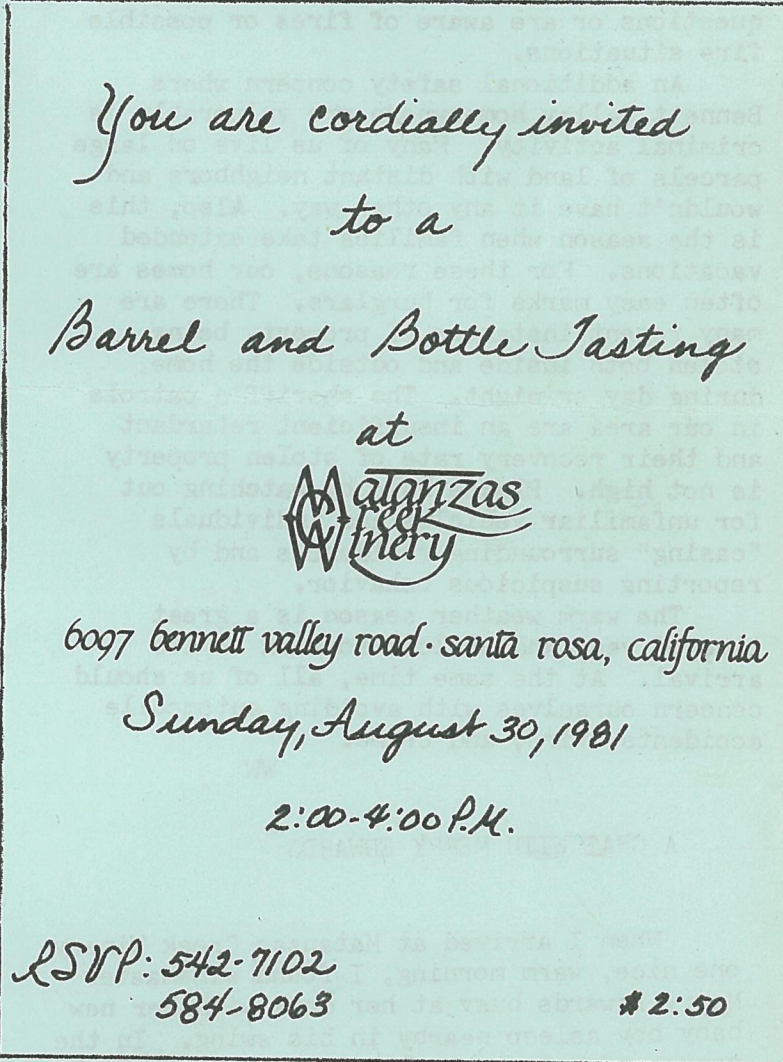 You are cordially invited
to a
Barrel and Bottle Tasting
at
Matanzas
Creek
Winery
6097 bennett valley road · santa rosa, california
Sunday, August 30, 1981
2:00-4:00 P.M.
RSVP: 542-7102
584-8063
$2:50